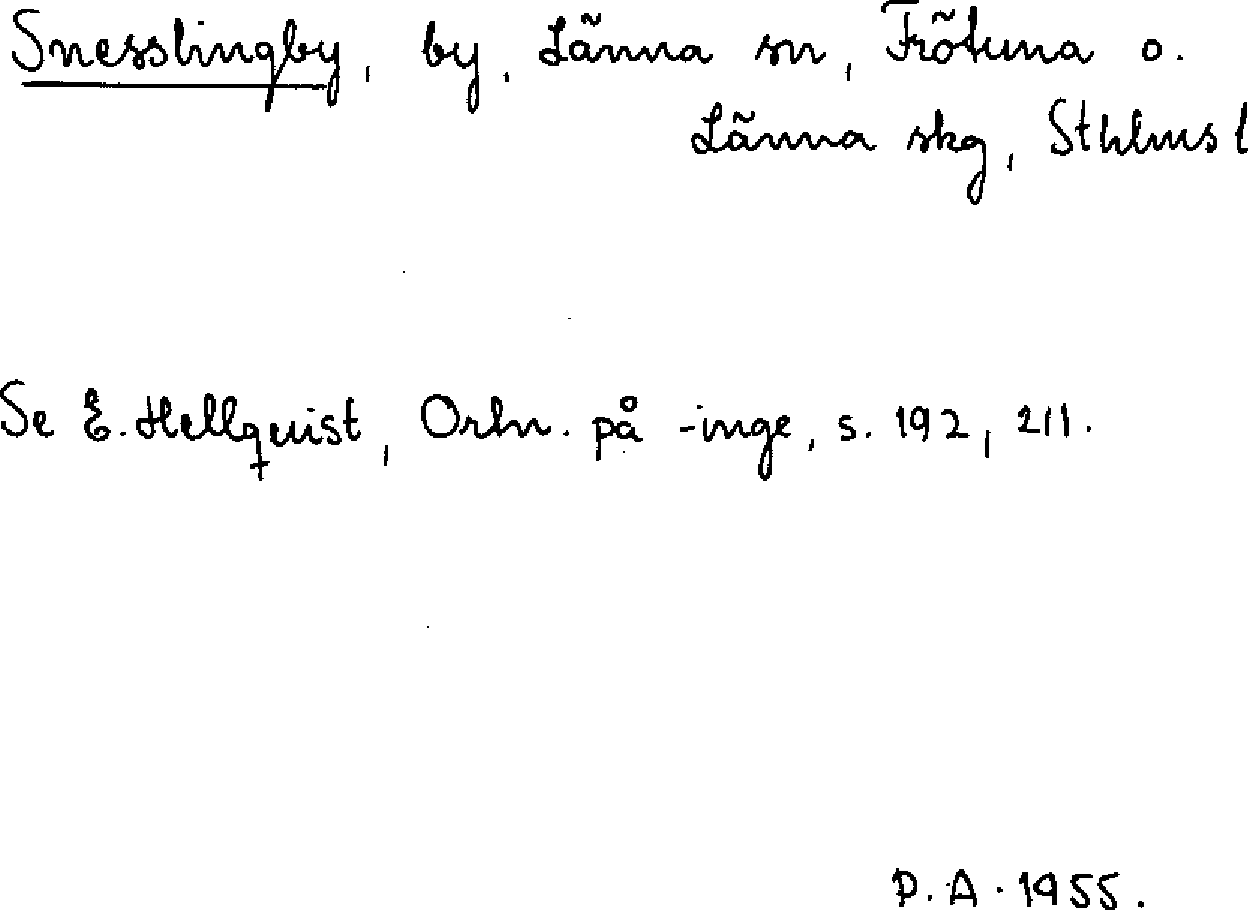 Snesslingby, by, Länna sn, Frötuna o.
Länna skg, Sthlms l
Se E. Hellquist, Ortn. på -inge, s. 192, 211.
P.A. 1955.